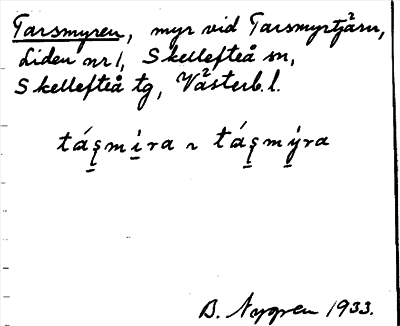 Tarsmyren, myr vid Tarsmyrtjärn,
Liden nr 1, Skellefteå sn,
Skellefteå tg, Västerb. l.
tá̠s̠mi̠ra ~ tá̠s̠mý̠ra
B. Nygren 1933.